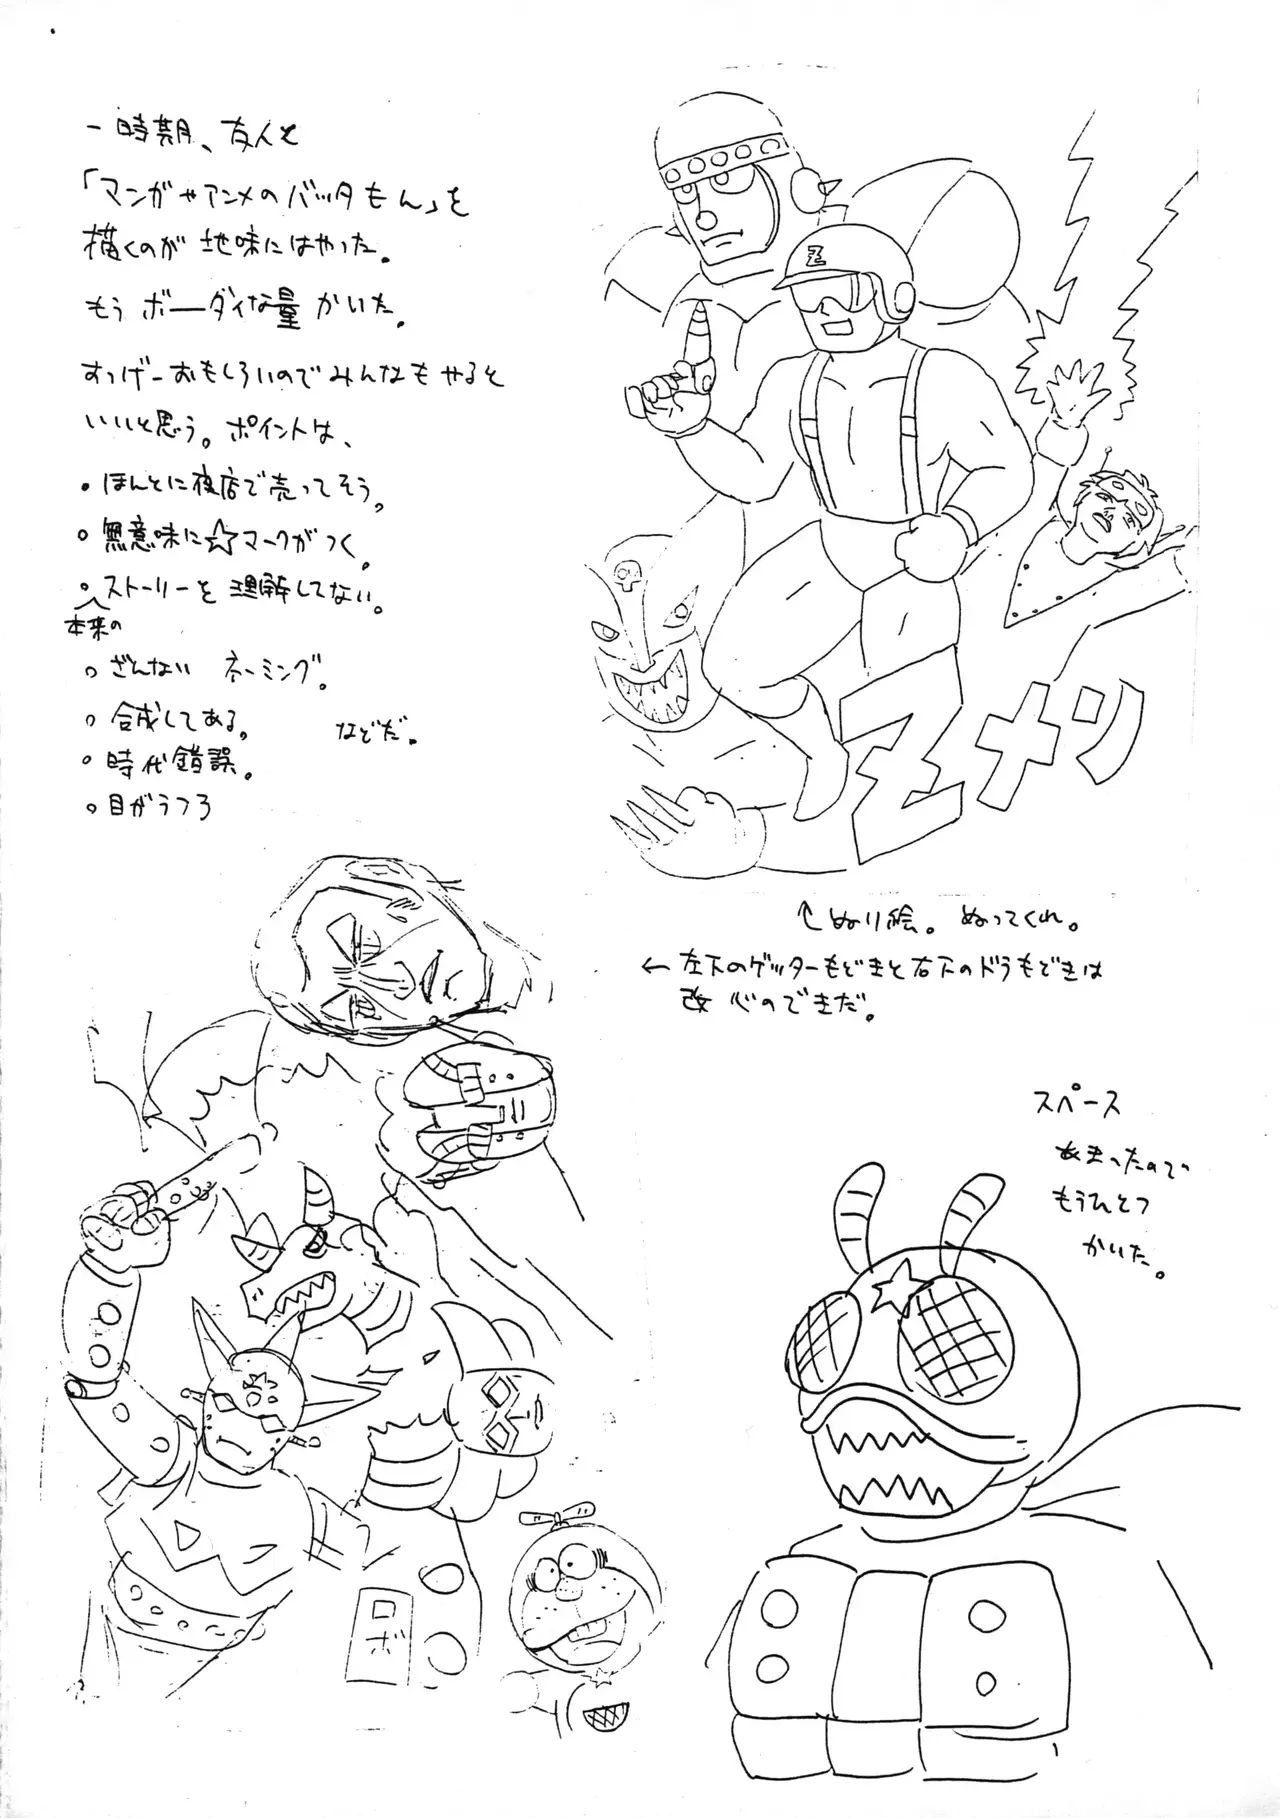 一時期、友人と
「マンガやアニメのバッタもん」を
描くのが地味にはやった。
もうボーダイな量かいた。
すっげーおもしろいのでみんなもやると
いいと思う。ポイントは、
・ほんとに夜店で売ってそう。
・無意味に☆マークがつく。
・本来のストーリーを理解してない。
・ざんない ネーミング。
・合成してある。
などだ。
・時代錯誤。
・目がうつろ
Z
Zメン
↑ぬり絵。ぬってくれ。
←左下のゲッターもどきと右下のドラもどきは
改心のできだ。
スペース
あまったので
もうひとつ
かいた。
ロボ